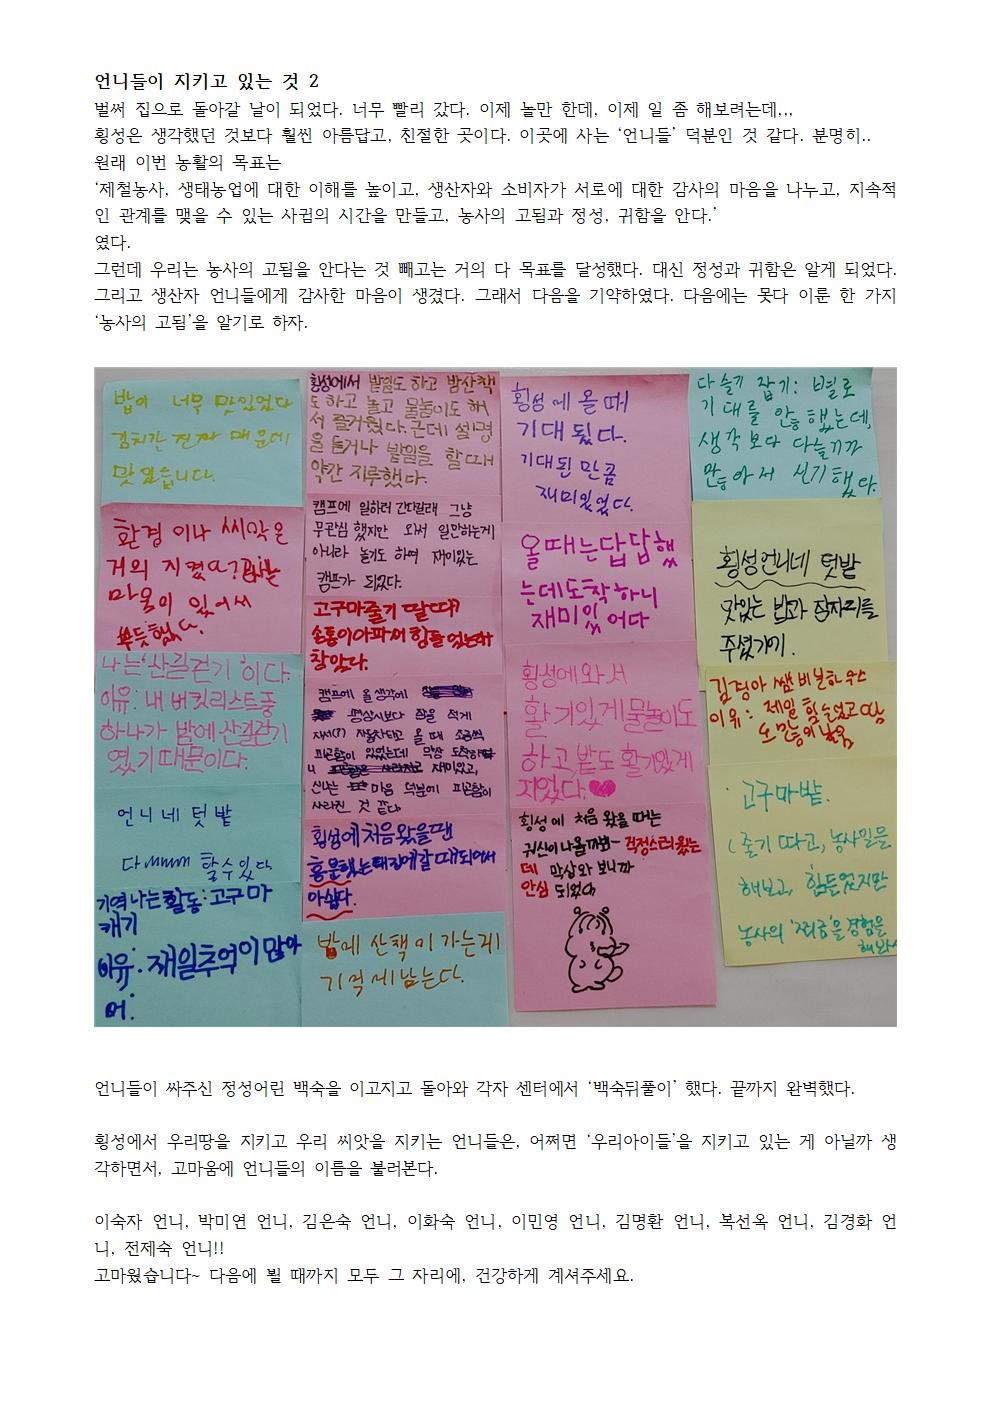 언니들이 지키고 있는 것 2
벌써 집으로 돌아갈 날이 되었다. 너무 빨리 갔다. 이제 놀만 한데, 이제 일 좀 해보려는데,,,
횡성은 생각했던 것보다 훨씬 아름답고, 친절한 곳이다. 이곳에 사는 ‘언니들’ 덕분인 것 같다. 분명히..
원래 이번 농활의 목표는
‘제철농사, 생태농업에 대한 이해를 높이고, 생산자와 소비자가 서로에 대한 감사의 마음을 나누고, 지속적
인 관계를 맺을 수 있는 사귐의 시간을 만들고, 농사의 고됨과 정성, 귀함을 안다.’
였다.
그런데 우리는 농사의 고됨을 안다는 것 빼고는 거의 다 목표를 달성했다. 대신 정성과 귀함은 알게 되었다.
그리고 생산자 언니들에게 감사한 마음이 생겼다. 그래서 다음을 기약하였다. 다음에는 못다 이룬 한 가지
‘농사의 고됨’을 알기로 하자.
밥이 너무 맛있었다
김치가 진짜 매운데
맛있습니다.
환경 이나 씨악은
거의 지켰다?
마음이 있어서
뿌듯했다.
나는 '산길걷기'이다.
이유: 내 버킷리스트중
하나가 밤에 산길걷기
였기 때문이다.
언니네 텃밭
다 할수있다
기억나는 활동: 고구마
캐기
이유: 재일추억이 많아
머.
횡성에서 밭일도 하고 밤산책
도 하고 놀고 물놀이도 해
서 즐거웠다. 근데 설명
을 듣거나 밭일을 할 때
약간 지루했다.
캠프에 일하러 간다길래 그냥
무관심 했지만 와서 일만하는게
아니라 놀기도 하며 재미있는
캠프가 되었다.
고구마줄기 딸때?
손톱이아파서 힘들었는데
참았다.
캠프에 올 생각에
평상시보다 잠을 적게
자서(?) 자동차타고 올 때 조금씩
피곤함이 있었는데 막상 도착하
니 재미있고,
신나는 마음 덕분에 피곤함이
사라진 것 같다
횡성에 처음왔을땐
흥분했는데 집에갈때되어서
아쉽다.
밤에 산책이 가는게
기억에 남는다.
횡성에 올 때
기대 됬다.
기대된 만큼
재미있었다.
올때는답답했
는데도착하니
재미있어다
횡성에와서
활기있게물놀이도
하고,밭도 활기있게
지었다.
횡성에 처음 왔을 때는
귀신이나올까봐~ 걱정스러웠는
데 막상와 보니까
안심 되었다
다슬기 잡기: 별로
기대를 안 했는데,
생각보다 다슬기가
많아서 신기했다.
횡성언니네 텃밭
맛있는 밥과 잠자리를
주셨기에.
김정아 쌤 비닐하우스
이유: 제일 힘들었고 땀
도 많이 남음
고구마밭.
(줄기 따고, 농사일을
해보고, 힘들었지만
농사의 '조금'을 경험을
해봐서
언니들이 싸주신 정성어린 백숙을 이고지고 돌아와 각자 센터에서 ‘백숙뒤풀이’ 했다. 끝까지 완벽했다.
횡성에서 우리땅을 지키고 우리 씨앗을 지키는 언니들은, 어쩌면 ‘우리아이들’을 지키고 있는 게 아닐까 생
각하면서, 고마움에 언니들의 이름을 불러본다.
이숙자 언니, 박미연 언니, 김은숙 언니, 이화숙 언니, 이민영 언니, 김명환 언니, 복선옥 언니, 김경화 언
니, 전제숙 언니!!
고마웠습니다~ 다음에 뵐 때까지 모두 그 자리에, 건강하게 계셔주세요.